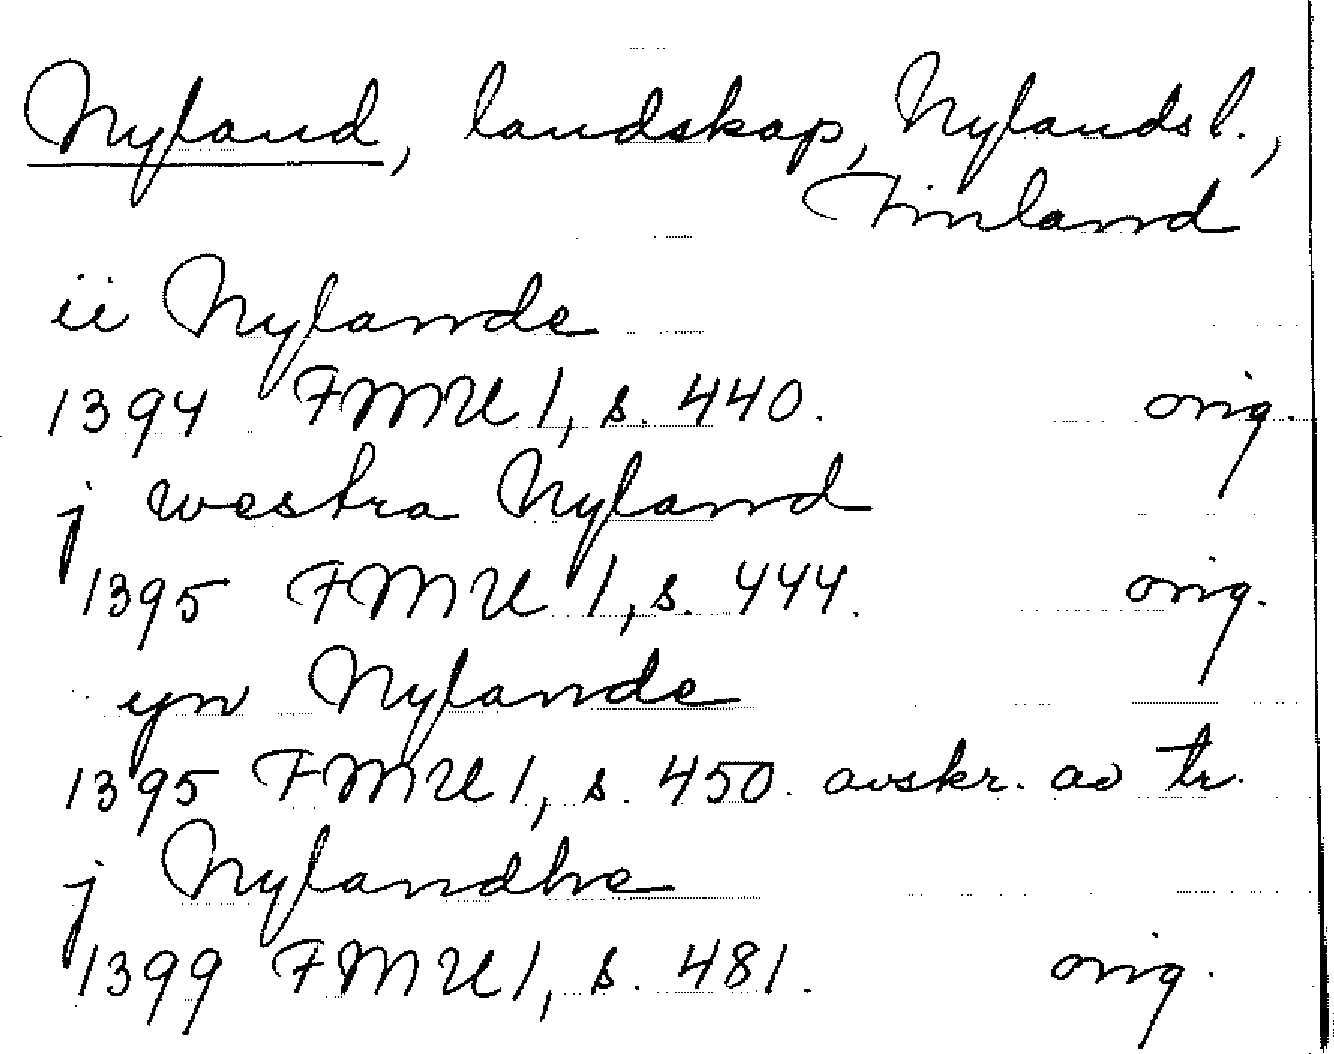 Nyland, landskap, Nylands l.,
Finland
ii Nylande
1394 FMU 1, s. 440. orig.
j westra Nyland
1395 FMU 1, s. 444. orig.
yn Nylande
1395 FMU 1, s. 450. avskr. av tr.
j Nylandhe
1399 FMU 1, s. 481. orig.